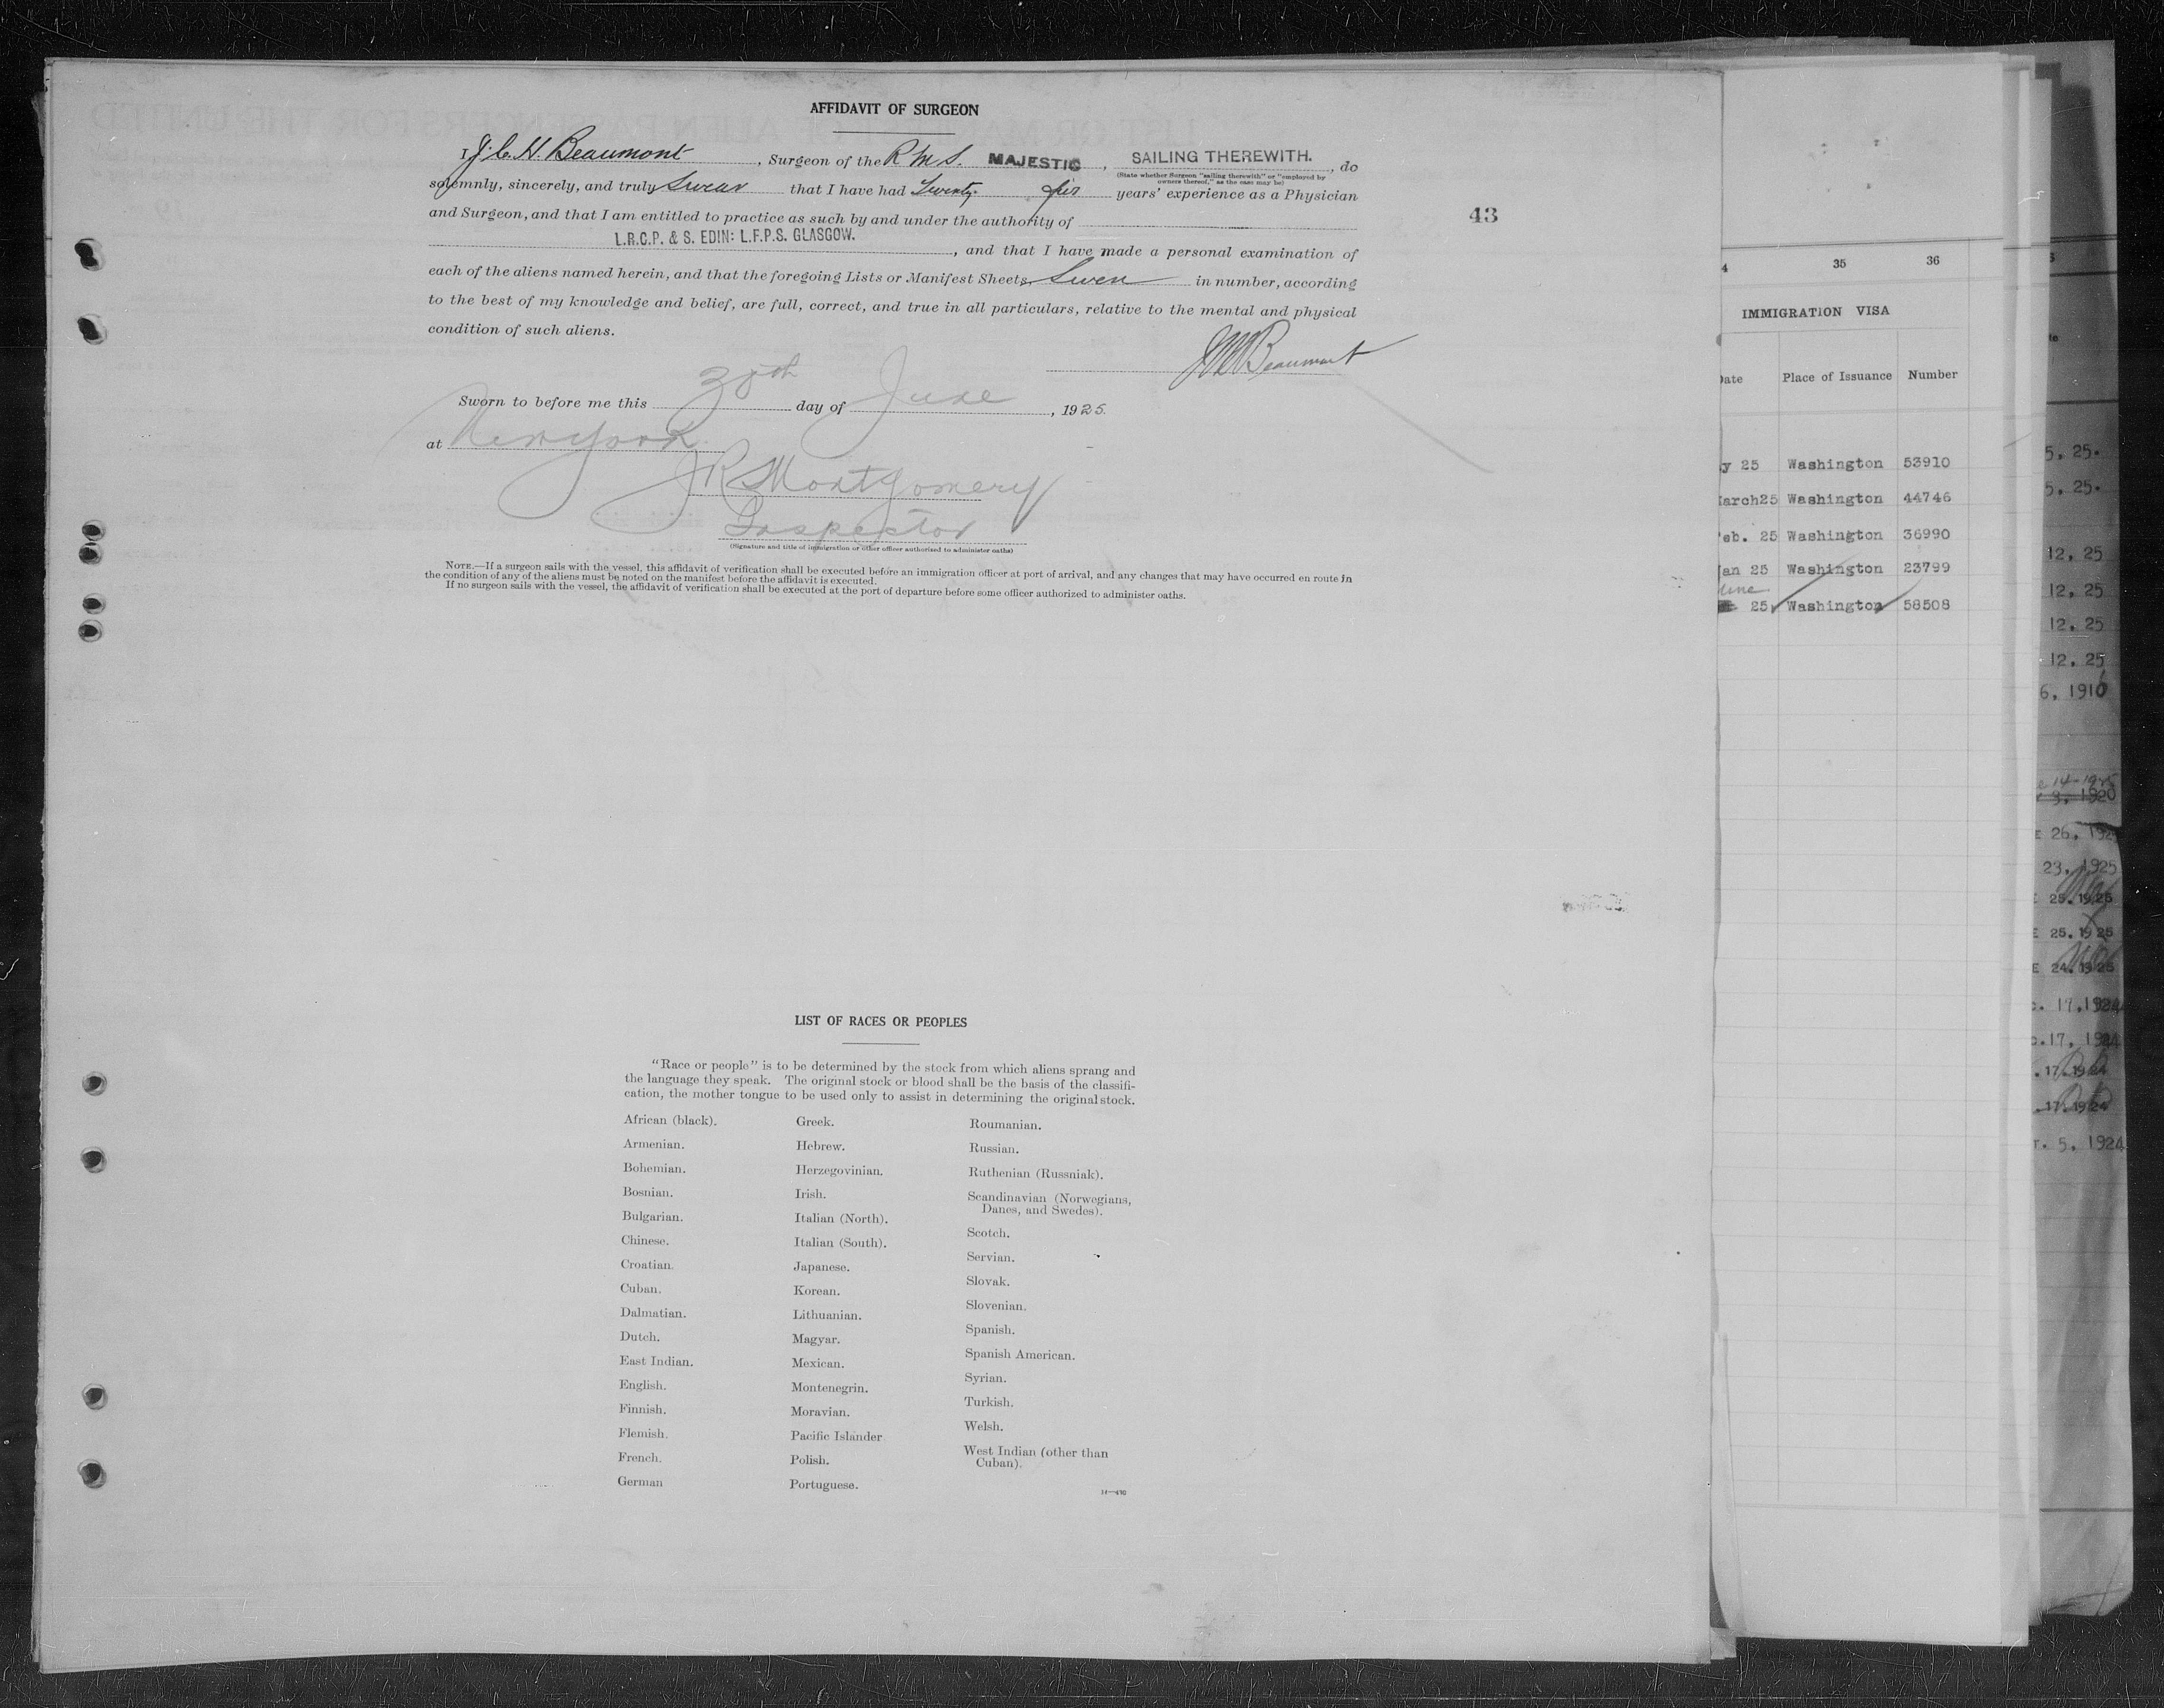 AFFIDAVIT OF SURGEON
I, J. C. H. Beaumont, Surgeon of the R M S. MAJESTIC, SAILING THEREWITH., do
(State whether Surgeon "sailing therewith" or "employed by
owners thereof," as the case may be)
solemnly, sincerely, and truly Swear that I have had Twenty years' experience as a Physician
and Surgeon, and that I am entitled to practice as such by and under the authority of
L.R.C.P. & S. EDIN: L.F.P.S. GLASGOW.
, and that I have made a personal examination of
each of the aliens named herein, and that the foregoing Lists or Manifest Sheets, in number, according
to the best of my knowledge and belief, are full, correct, and true in all particulars, relative to the mental and physical
condition of such aliens.
Beaumont
Sworn to before me this 30th day of June, 1925.
at New York
J R Montgomery
Inspector
(Signature and title of immigration or other officer authorized to administer oaths)
NOTE.—If a surgeon sails with the vessel, this affidavit of verification shall be executed before an immigration officer at port of arrival, and any changes that may have occurred en route in
the condition of any of the aliens must be noted on the manifest before the affidavit is executed.
If no surgeon sails with the vessel, the affidavit of verification shall be executed at the port of departure before some officer authorized to administer oaths.
43
LIST OF RACES OR PEOPLES
"Race or people" is to be determined by the stock from which aliens sprang and
the language they speak. The original stock or blood shall be the basis of the classifi-
cation, the mother tongue to be used only to assist in determining the original stock.
African (black).
Armenian.
Bohemian.
Bosnian.
Bulgarian.
Chinese.
Croatian.
Cuban.
Dalmatian.
Dutch.
East Indian.
English.
Finnish.
Flemish.
French.
German
Greek.
Hebrew.
Herzegovinian.
Irish.
Italian (North).
Italian (South).
Japanese.
Korean.
Lithuanian.
Magyar.
Mexican.
Montenegrin.
Moravian.
Pacific Islander
Polish.
Portuguese.
Roumanian.
Russian.
Ruthenian (Russniak).
Scandinavian (Norwegians,
Danes, and Swedes).
Scotch.
Servian.
Slovak.
Slovenian.
Spanish.
Spanish American.
Syrian.
Turkish.
Welsh.
West Indian (other than
Cuban).
4 35 36
IMMIGRATION VISA
Date Place of Issuance Number
y 25 Washington 53910
March25 Washington 44746
eb. 25 Washington 36990
Jan 25 Washington 23799
June
25 Washington 58508
5, 25.
5, 25.
12, 25
12, 25
12, 25
12, 25
6, 1910
14-1925
9, 1920
E 26, 192
23, 1925
E 25.1925
E 25.1925
E 24.1925
c. 17.1924
c.17, 1924
. 17.1924
.17.1924
r. 5, 1924